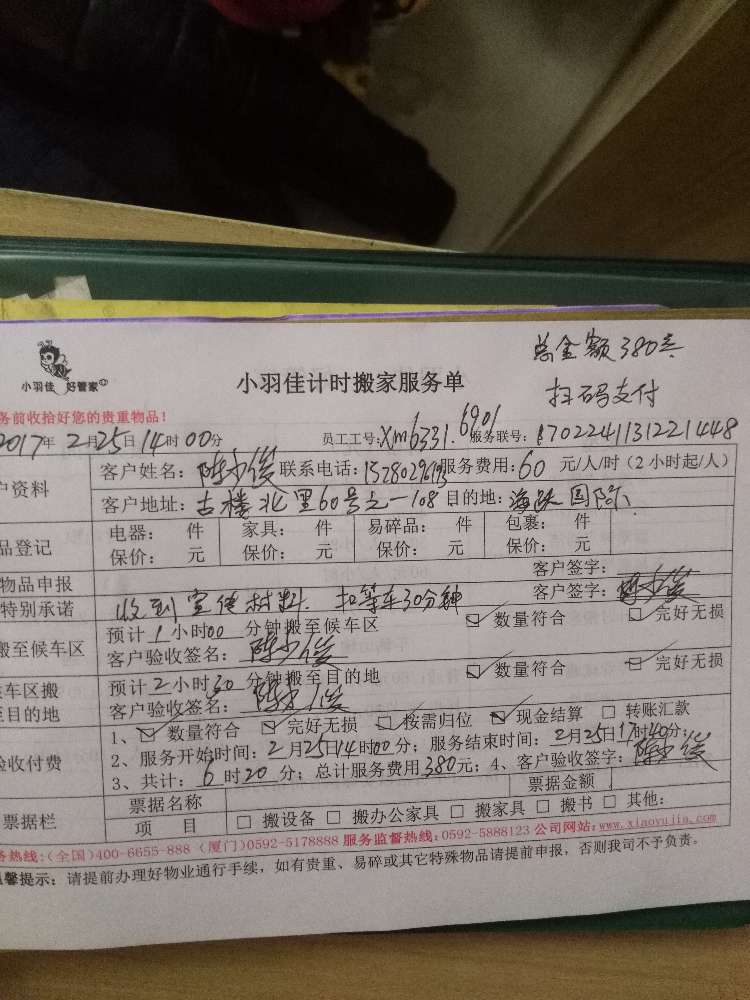 总金额380元
扫码支付
小羽佳 好管家
小羽佳计时搬家服务单
务前收拾好您的贵重物品！
2017年2月25日14时00分
员工工号：Xm6331.6901 服务联号：1702241131221448
户资料
客户姓名： 联系电话： 服务费用：60元/人/时（2小时起/人）
客户地址：古楼北里60号之一108 目的地：海 国际
品登记
电器： 件 家具： 件 易碎品： 件 包裹： 件
保价： 元 保价： 元 保价： 元 保价： 元
物品申报
客户签字：
特别承诺
收到宣传材料. 扣等车30分钟
客户签字：
搬至候车区
预计1小时00分钟搬至候车区 数量符合 完好无损
客户验收签名：
候车区搬
至目的地
预计2小时30分钟搬至目的地 数量符合 完好无损
客户验收签名：
验收付费
1、数量符合 完好无损 按需归位 现金结算 转账汇款
2、服务开始时间：2月25日14时00分；服务结束时间：2月25日17时40分；
3、共计：6时20分；总计服务费用380元；4、客户验收签字：
票据栏
票据名称 票据金额
项 目 搬设备 搬办公家具 搬家具 搬书 其他：
务热线：（全国）400-6655-888（厦门）0592-5178888 服务监督热线：0592-5888123 公司网站：www.xiaoyujia.com
温馨提示：请提前办理好物业通行手续，如有贵重、易碎或其它特殊物品请提前申报，否则我司不予负责。